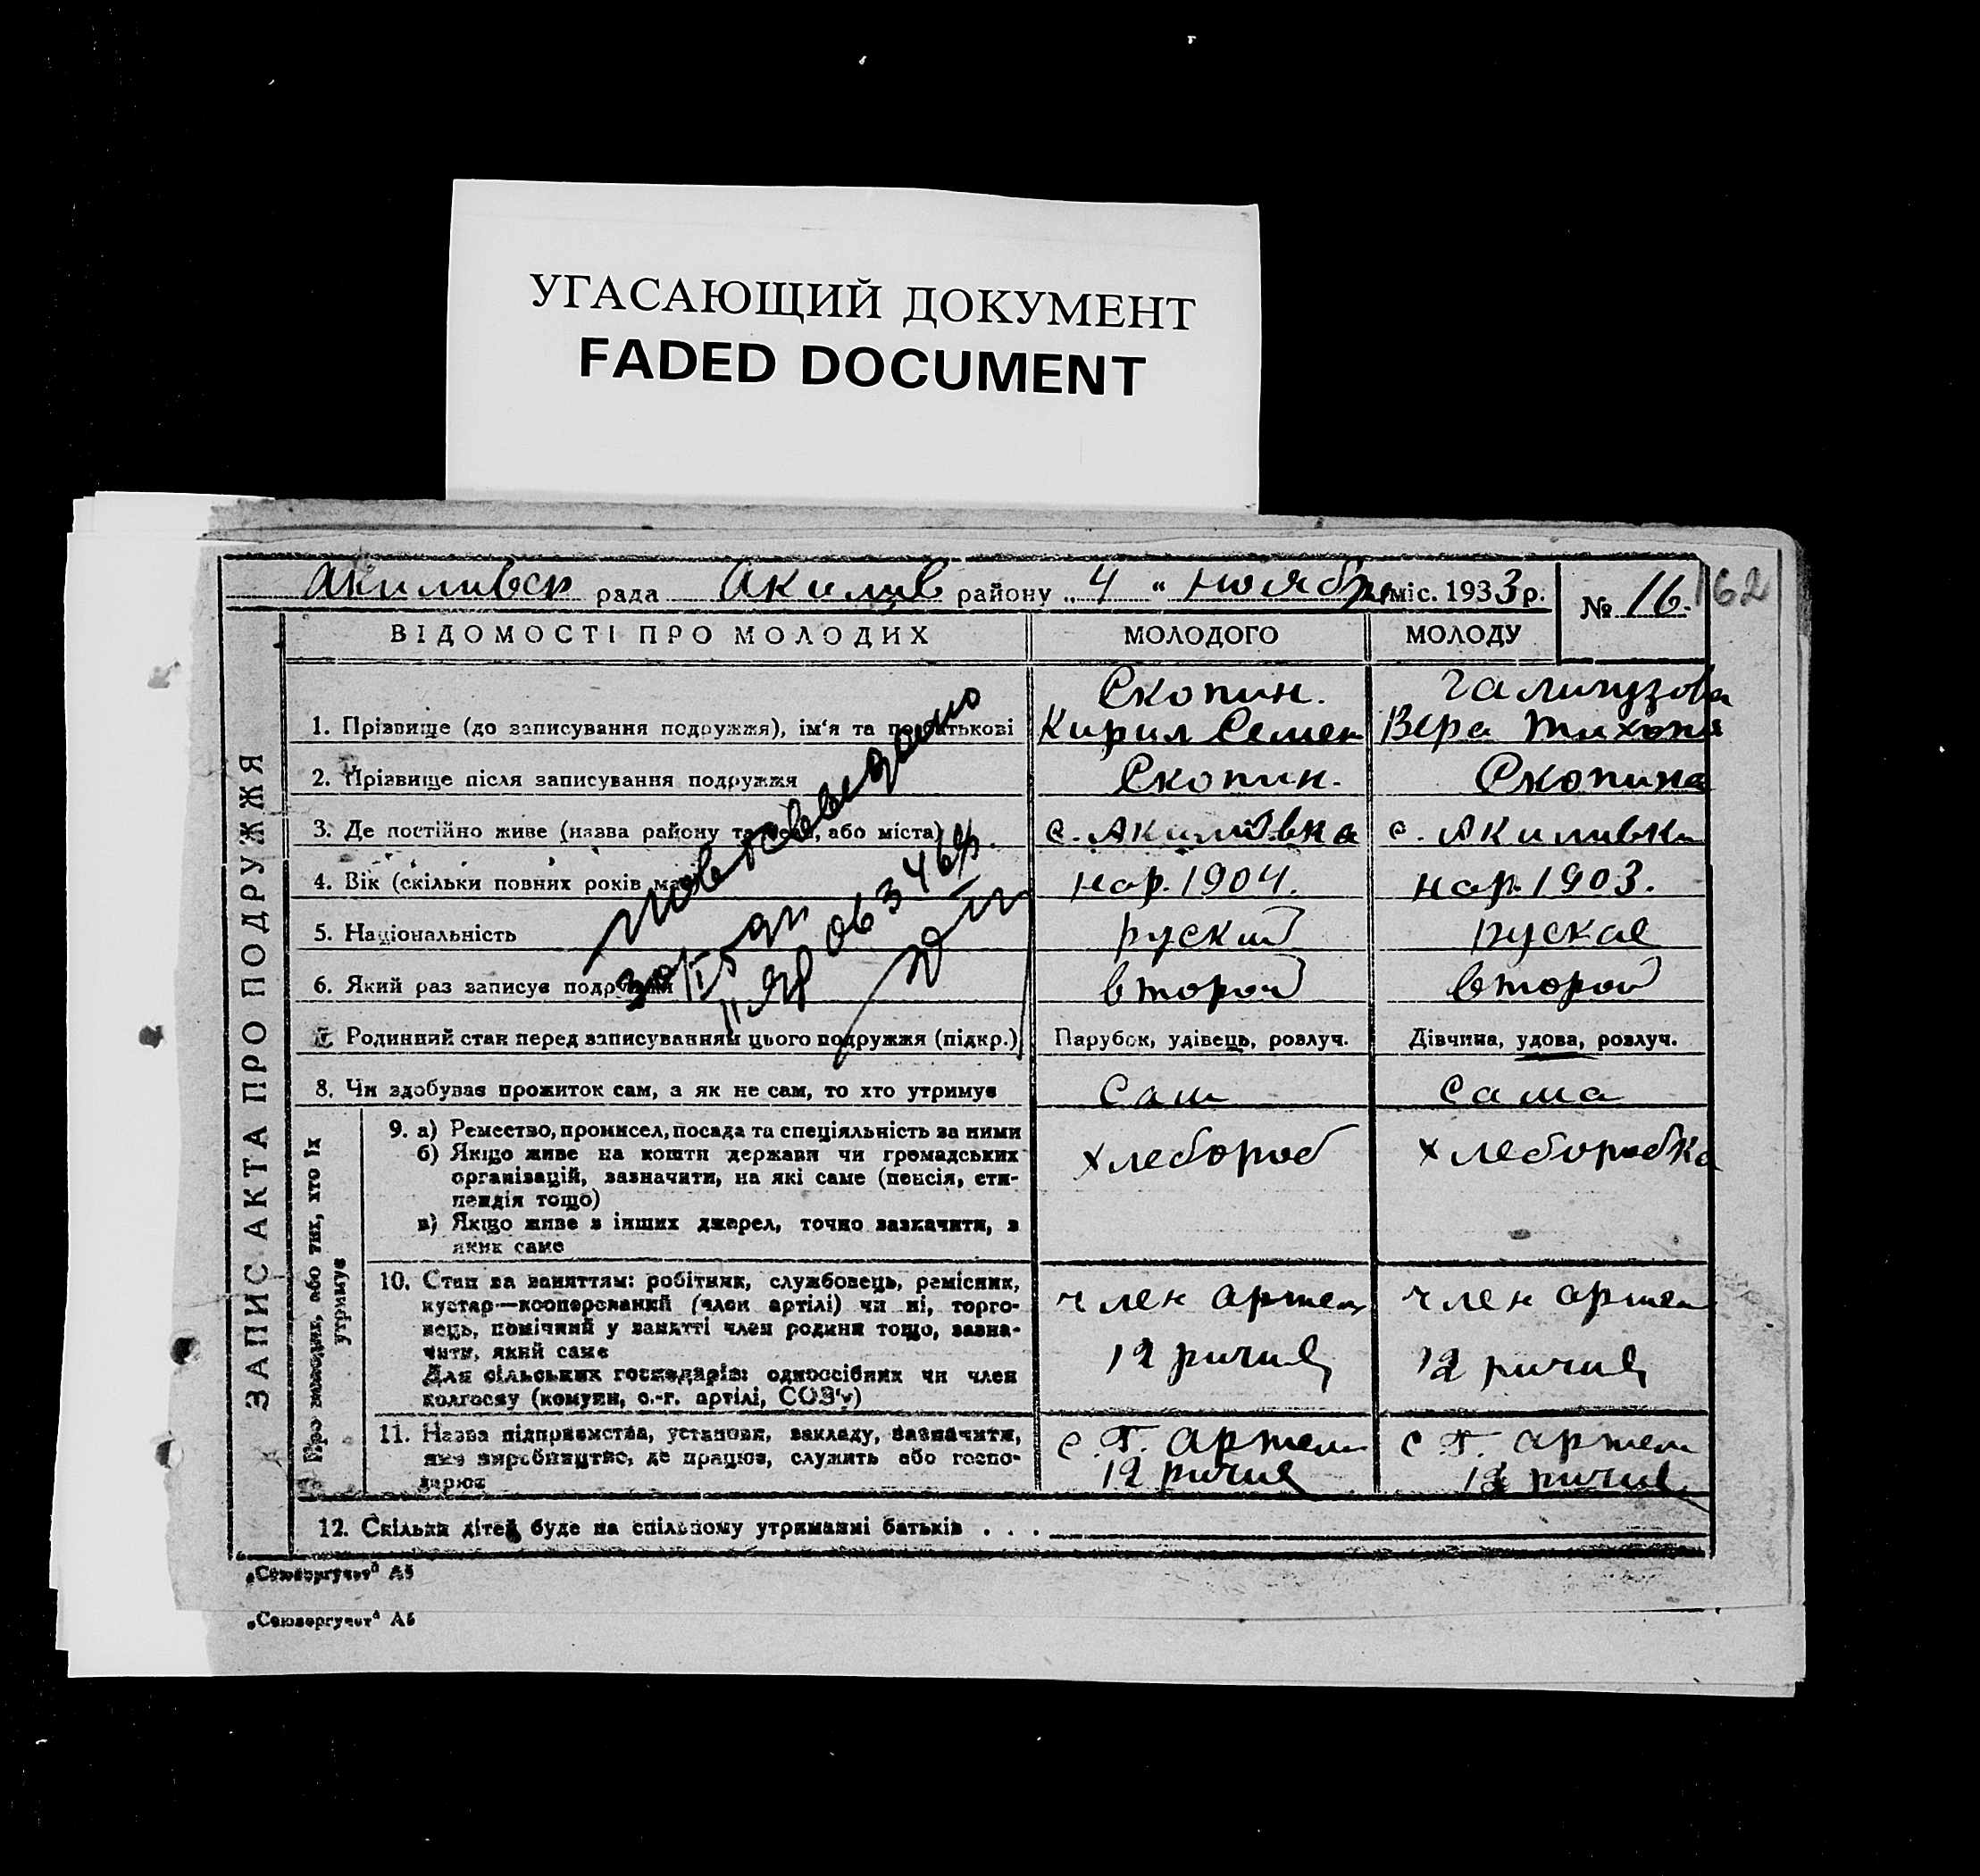 УГАСАЮЩИЙ ДОКУМЕНТ
FADED DOCUMENT
Акимивск рада Акимив району „ 4 " ноября міс. 1933 р. № 16. 162
ЗАПИС АКТА ПРО ПОДРУЖЖЯ
ВІДОМОСТІ ПРО МОЛОДИХ МОЛОДОГО МОЛОДУ
Скопин.
1. Прізвище (до записування подружжя), ім'я та по батькові Кирил Семен Вера Тихоня
2. Прізвище після записування подружжя Скопин. Скопина
3. Де постійно живе (назва району та села, або міста) с. Акимовка с. Акимивка
4. Вік (скільки повних років має) нар. 1904. нар. 1903.
5. Національність руский руская
6. Який раз записує подружжя второй второй
7. Родинний стан перед записуванням цього подружжя (підкр.) Парубок, удівець, розлуч. Дівчина, удова, розлуч.
8. Чи здобував прожиток сам, а як не сам, то хто утримує Сам Сама
Про молодих, або тих, хто їх утримує
9. а) Ремество, промисел, посада та спеціяльність за ними хлебороб хлеборобка
б) Якщо живе на кошти держави чи громадських
організацій, зазначити, на які саме (пенсія, сти-
пендія тощо)
в) Якщо живе з інших джерел, точно зазначити, з
яких саме
10. Стан за заняттям: робітник, службовець, ремісник,
кустар—кооперований (член артілі) чи ні, торго- член артел член артел
вець, помічний у занятті член родини тощо, зазна-
чити, який саме 12 ричив 12 ричив
Для сільських господарів: одноосібник чи член
колгоспу (комуни, с.-г. артілі, СОЗ'у)
11. Назва підприємства, установи, закладу, зазначити, с Г. артел с Г. артел
яке виробництво, де працює, служить або госпо- 12 ричив 12 ричив
дарює
12. Скільки дітей буде на спільному утриманні батьків . . .
„Союзоргучот" А5
„Союзоргучот" А5